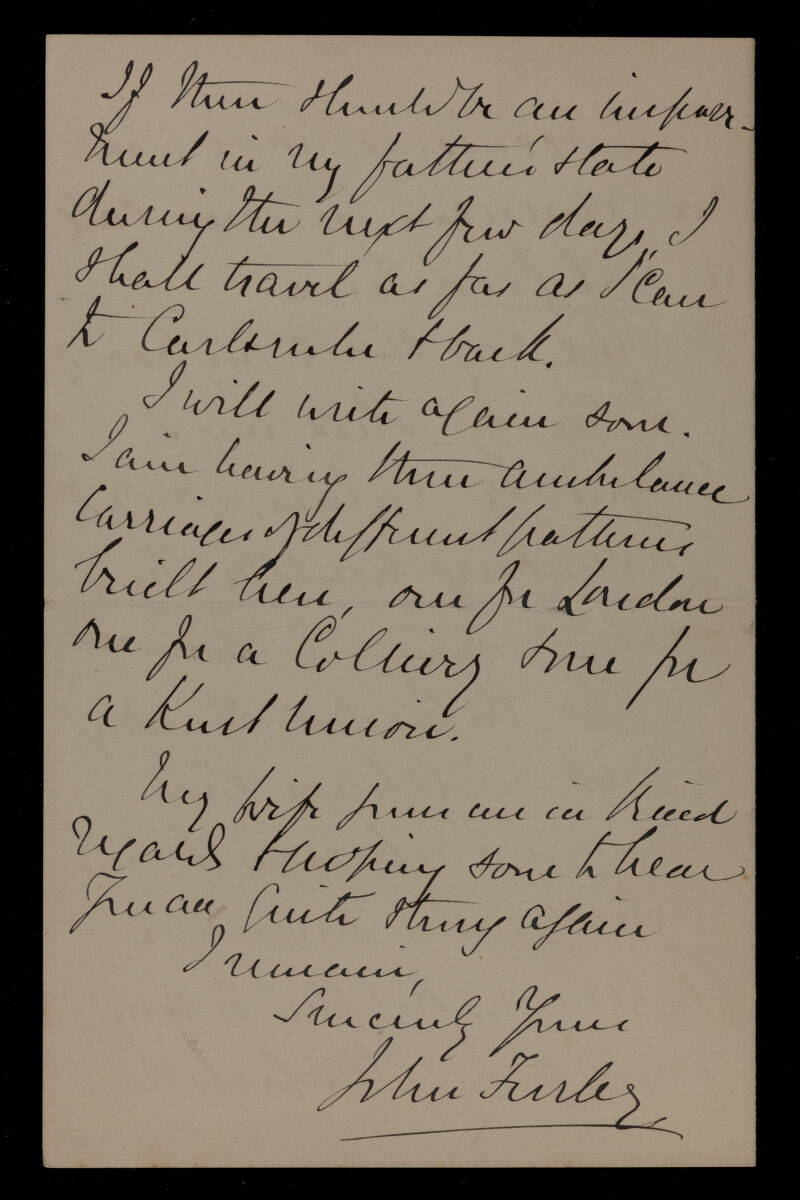 If there should be an improve-
ment in my father's state
during the next few days, I
shall travel as fast as I can
to Carlsruhe & back.
I will write again soon.
I am having three ambulance
carriages of different patterns
built here, one for London
one for a Colliery & one for
a Kent Union.
My wife joins me in kind
regards & hoping soon to hear
you are quite strong again
I remain,
Sincerely Yours
John Furley